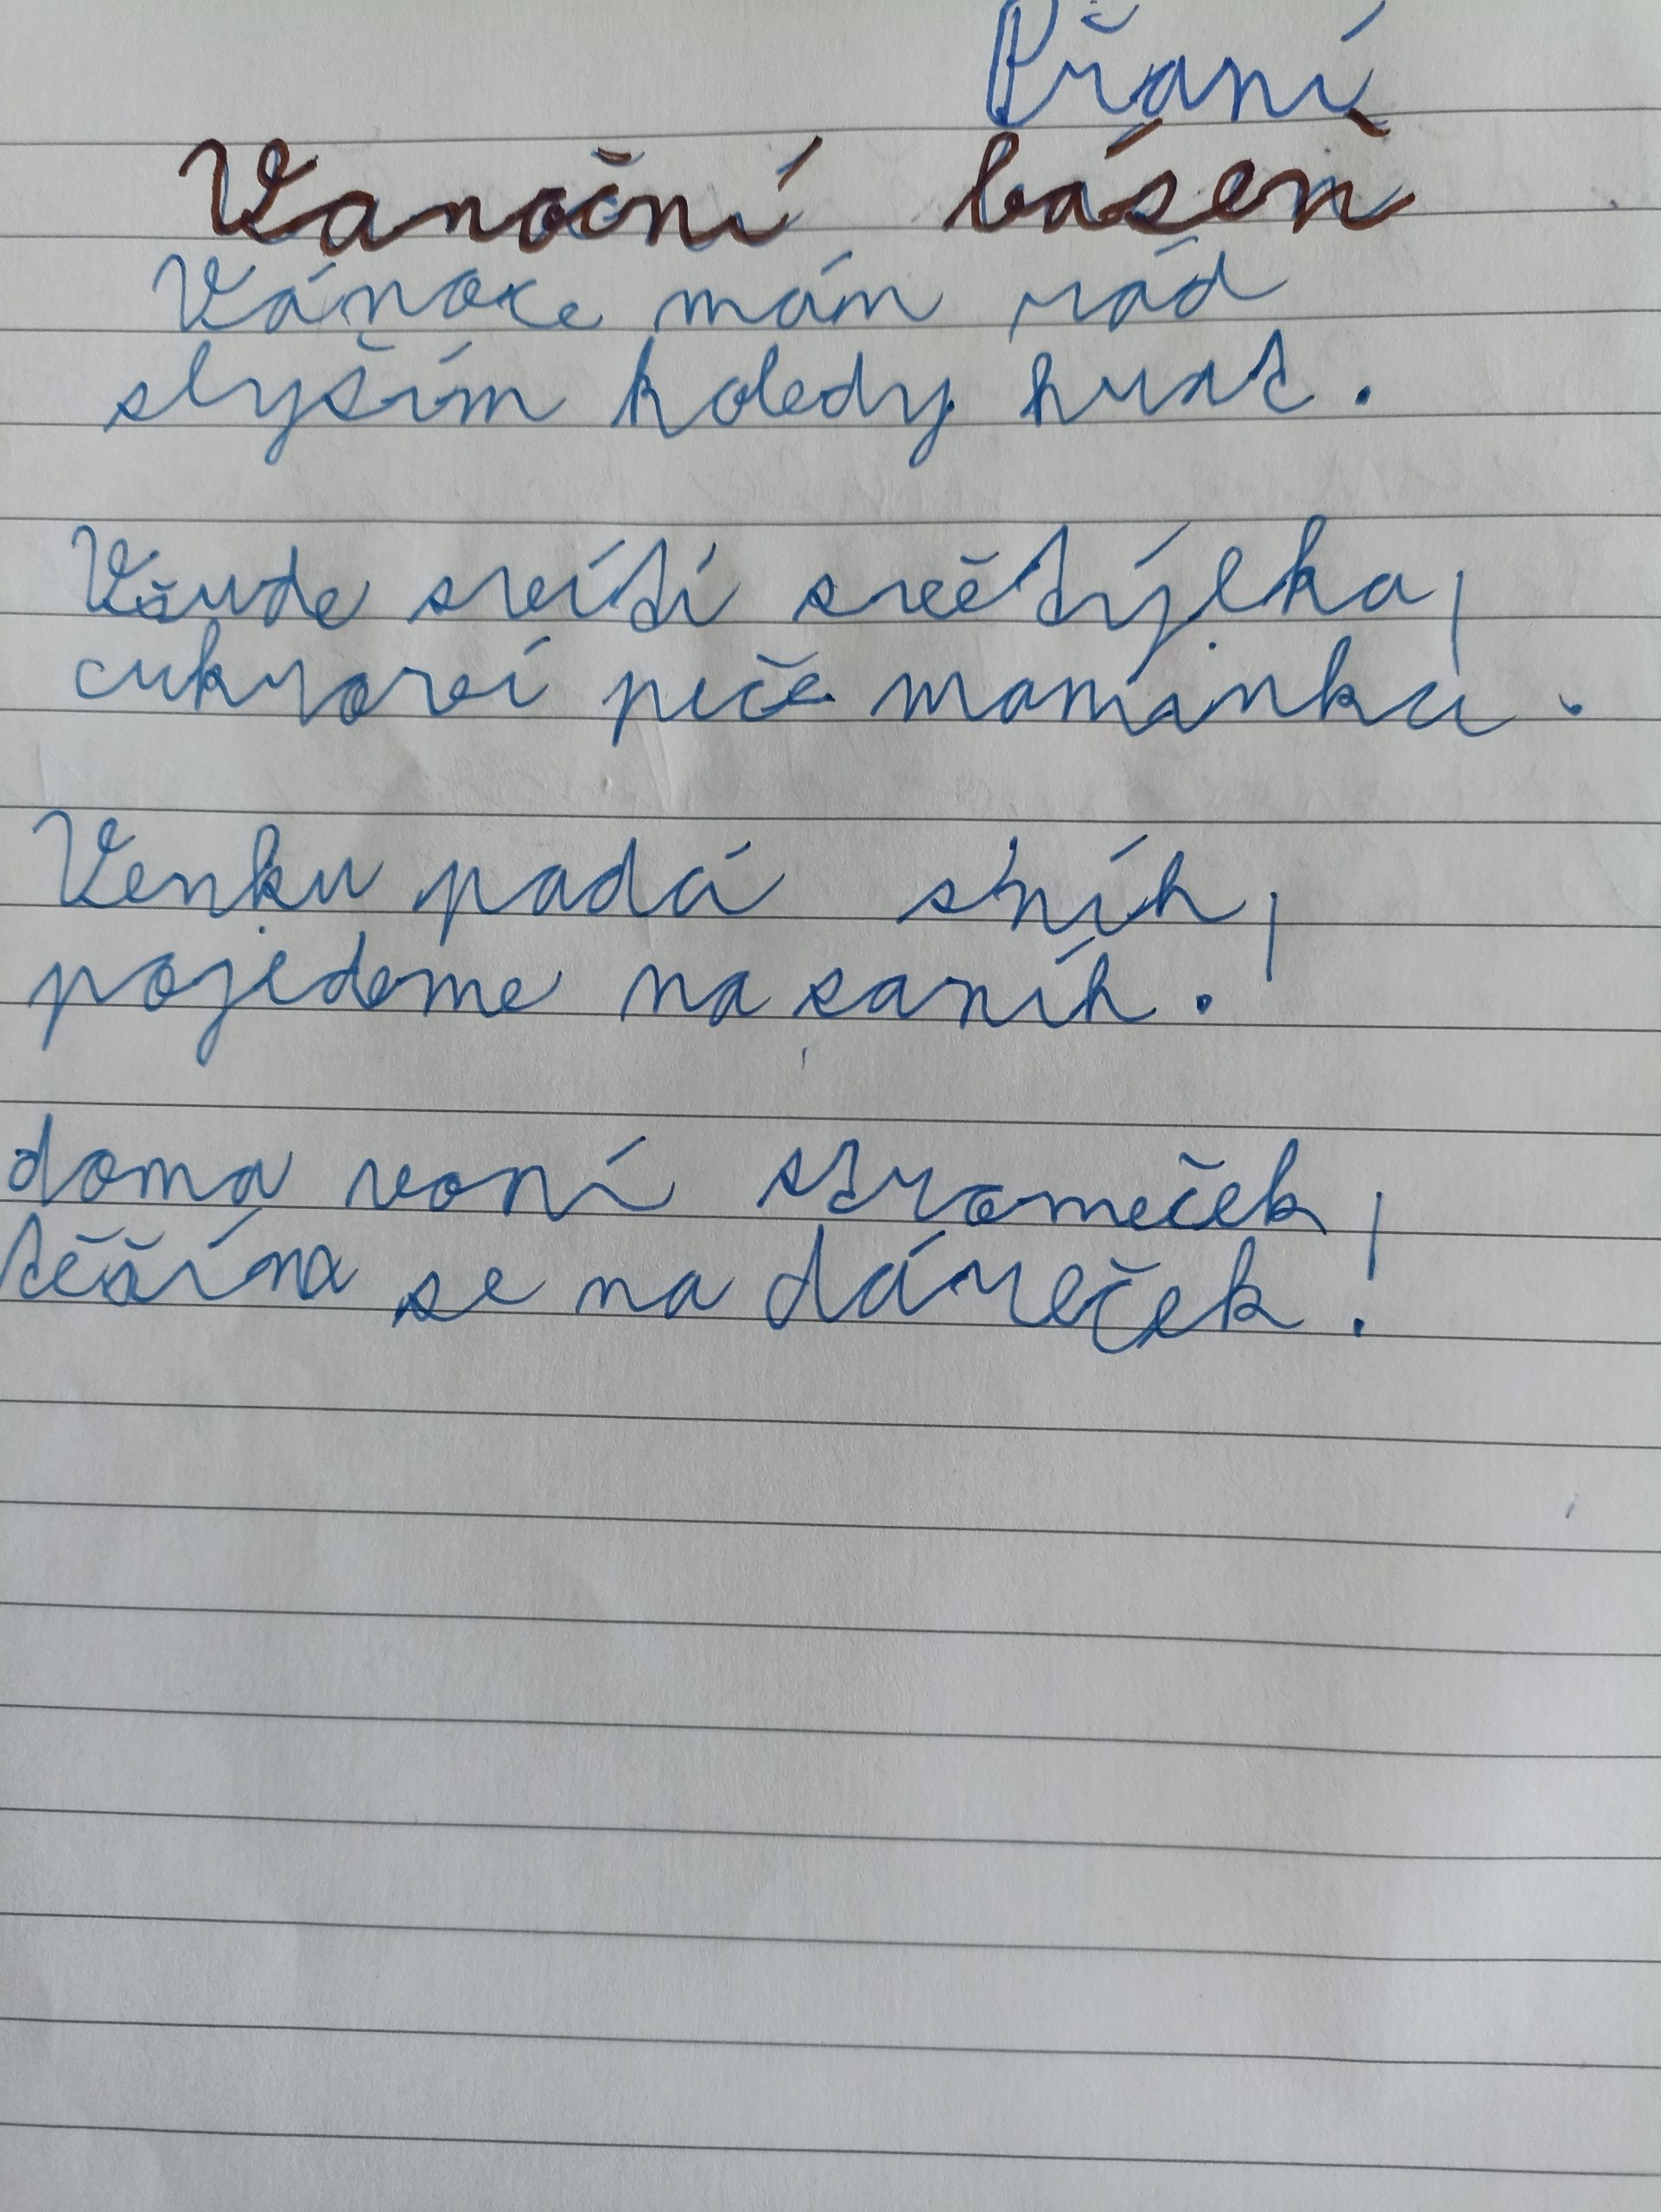 Přání
Vanoční báseň
Vánoce mám rád
slyším koledy hrát.
Všude svítí světýlka,
cukroví peče maminka.
Venku padá sníh,
pojedeme na saních.
doma voní stromeček,
těším se na dáreček.